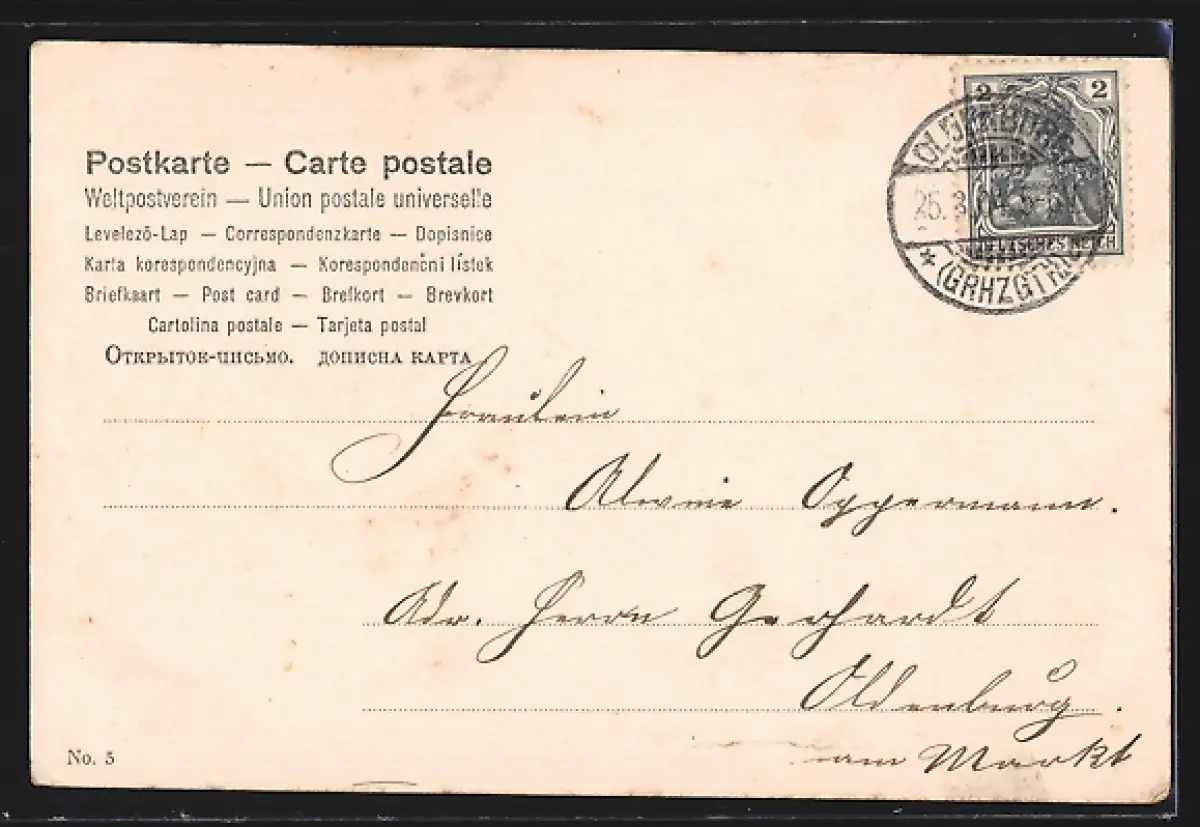 Postkarte — Carte postale
Weltpostverein — Union postale universelle
Levelező-Lap — Correspondenzkarte — Dopisnice
Karta korespondencyjna — Korespondenčni lístek
Briefkaart — Post card — Brefkort — Brevkort
Cartolina postale — Tarjeta postal
Открыток-чисьмо. дописна карта
2 2
OLDENBURG
25. 3.
DEUTSCHES REICH
* (GRHZGTH)
Fräulein
Alwine Oppermann.
Adr. Herrn Gerhardt
Oldenburg.
am Markt
No. 5